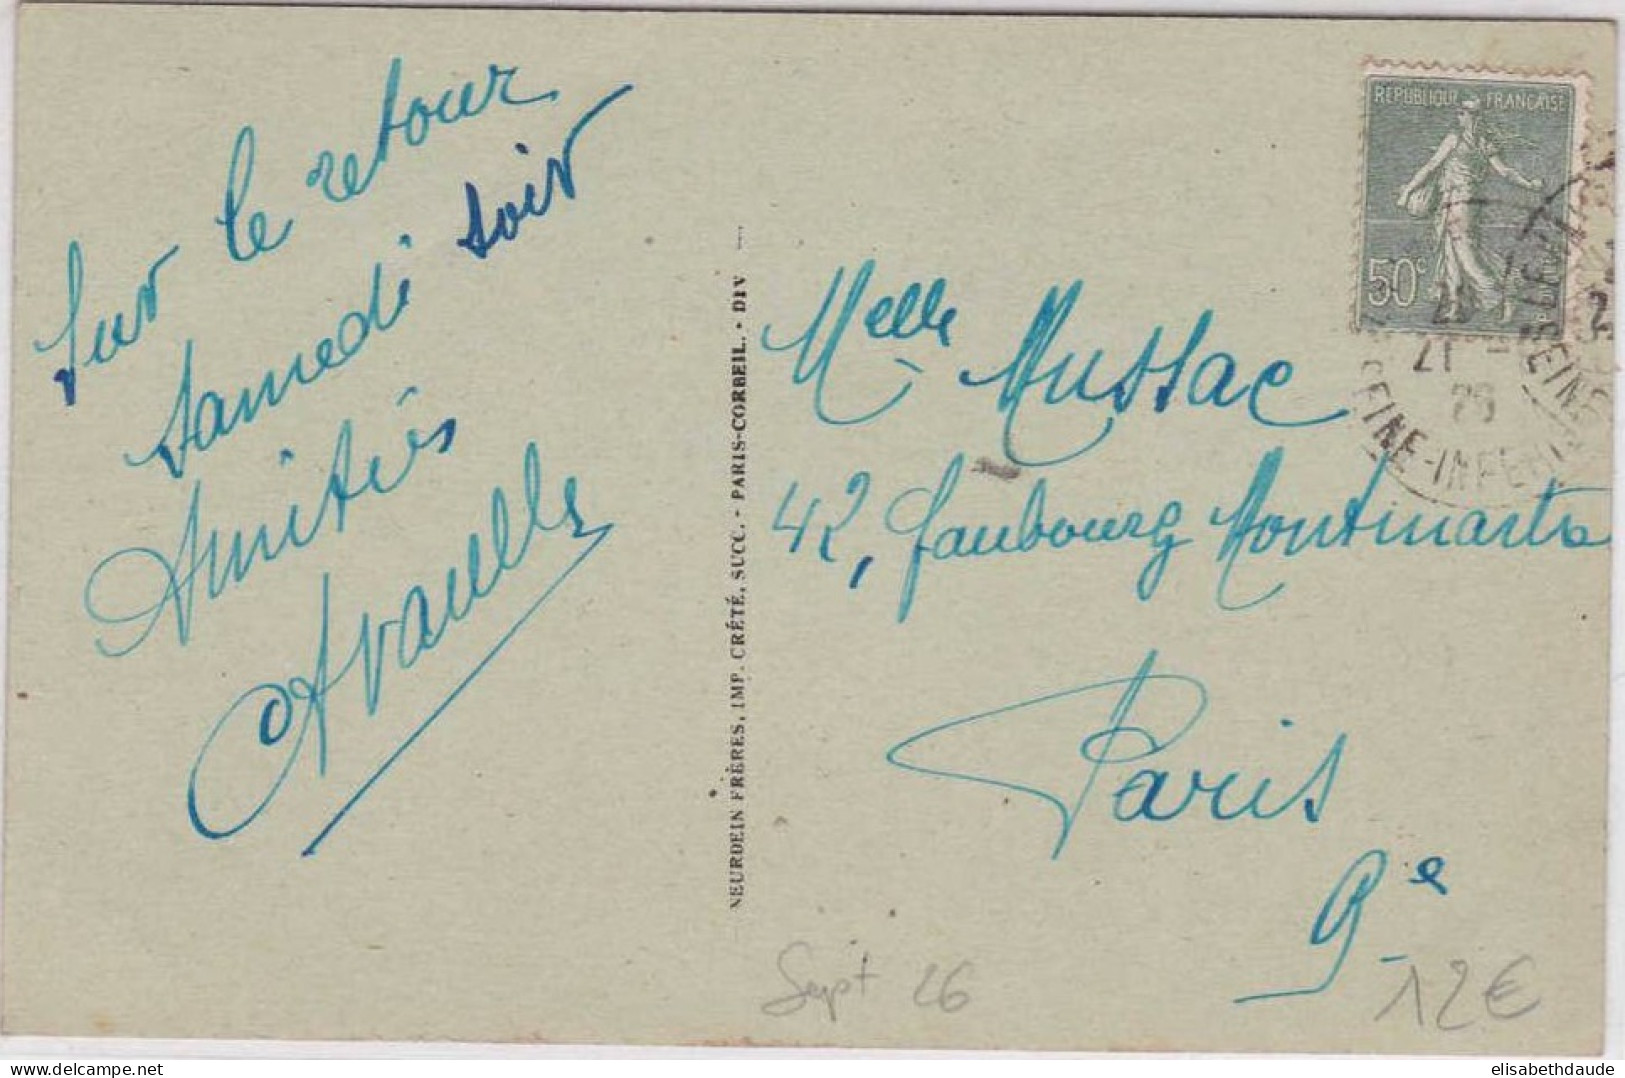 Sur le retour
samedi soir
Amitiés
NEURDEIN FRÈRES, IMP. CRÉTÉ, SUCC. - PARIS-CORBEIL. • DIV
RÉPUBLIQUE FRANÇAISE
50c
SEINE-INFER
Melle Mussac
42, faubourg Montmartre
Paris
9e
Sept 26
12€
elisabethdaude